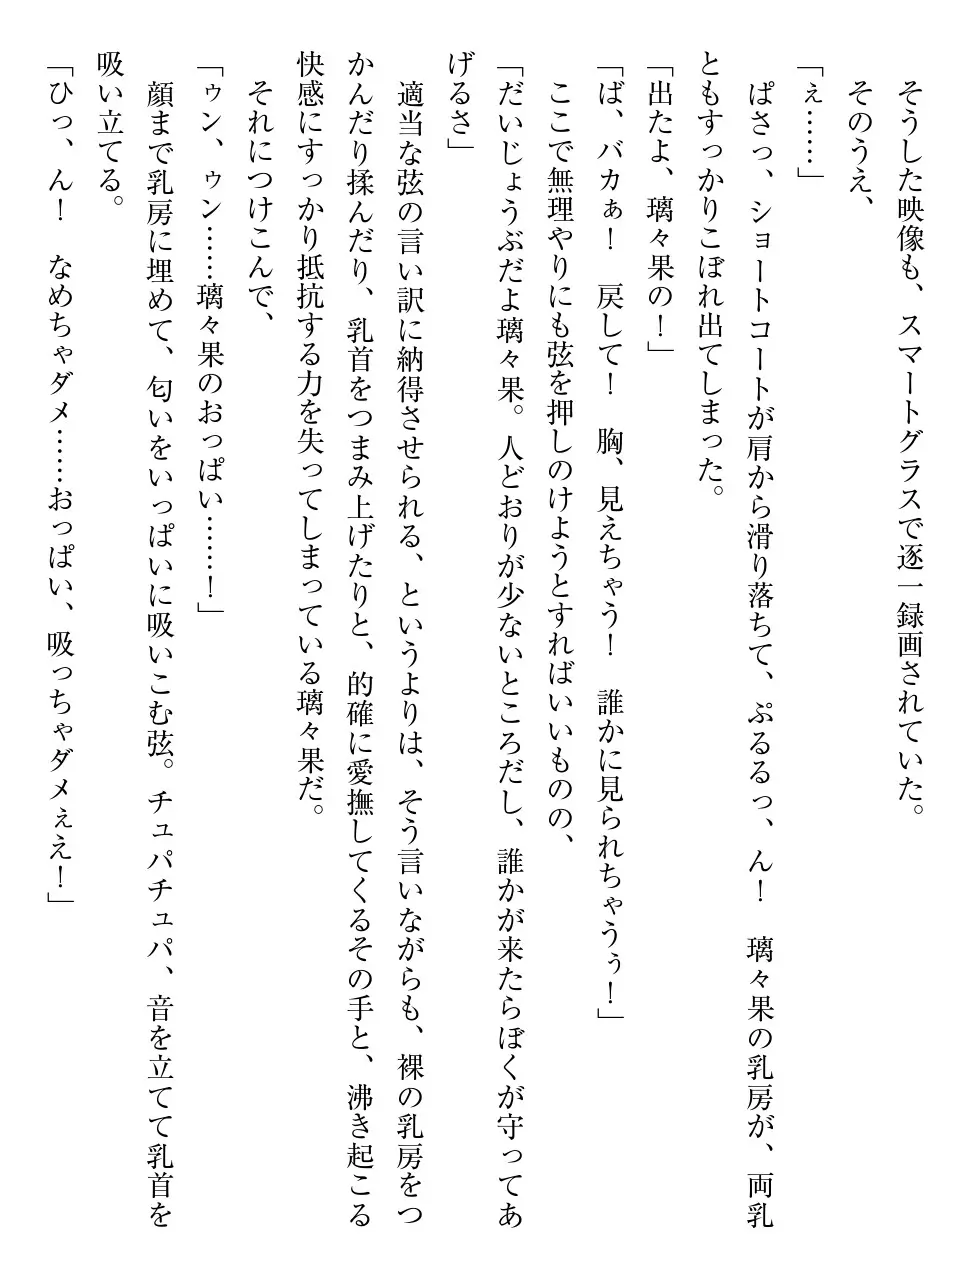 そうした映像も、スマートグラスで逐一録画されていた。
そのうえ、
「ぇ……」
ぱさっ、ショートコートが肩から滑り落ちて、ぷるるっ、ん！　璃々果の乳房が、両乳
ともすっかりこぼれ出てしまった。
「出たよ、璃々果の！」
「ば、バカぁ！　戻して！　胸、見えちゃう！　誰かに見られちゃうぅ！」
ここで無理やりにも弦を押しのけようとすればいいものの、
「だいじょうぶだよ璃々果。人どおりが少ないところだし、誰かが来たらぼくが守ってあ
げるさ」
適当な弦の言い訳に納得させられる、というよりは、そう言いながらも、裸の乳房をつ
かんだり揉んだり、乳首をつまみ上げたりと、的確に愛撫してくるその手と、沸き起こる
快感にすっかり抵抗する力を失ってしまっている璃々果だ。
それにつけこんで、
「ゥン、ゥン……璃々果のおっぱい……！」
顔まで乳房に埋めて、匂いをいっぱいに吸いこむ弦。チュパチュパ、音を立てて乳首を
吸い立てる。
「ひっ、ん！　なめちゃダメ……おっぱい、吸っちゃダメぇえ！」